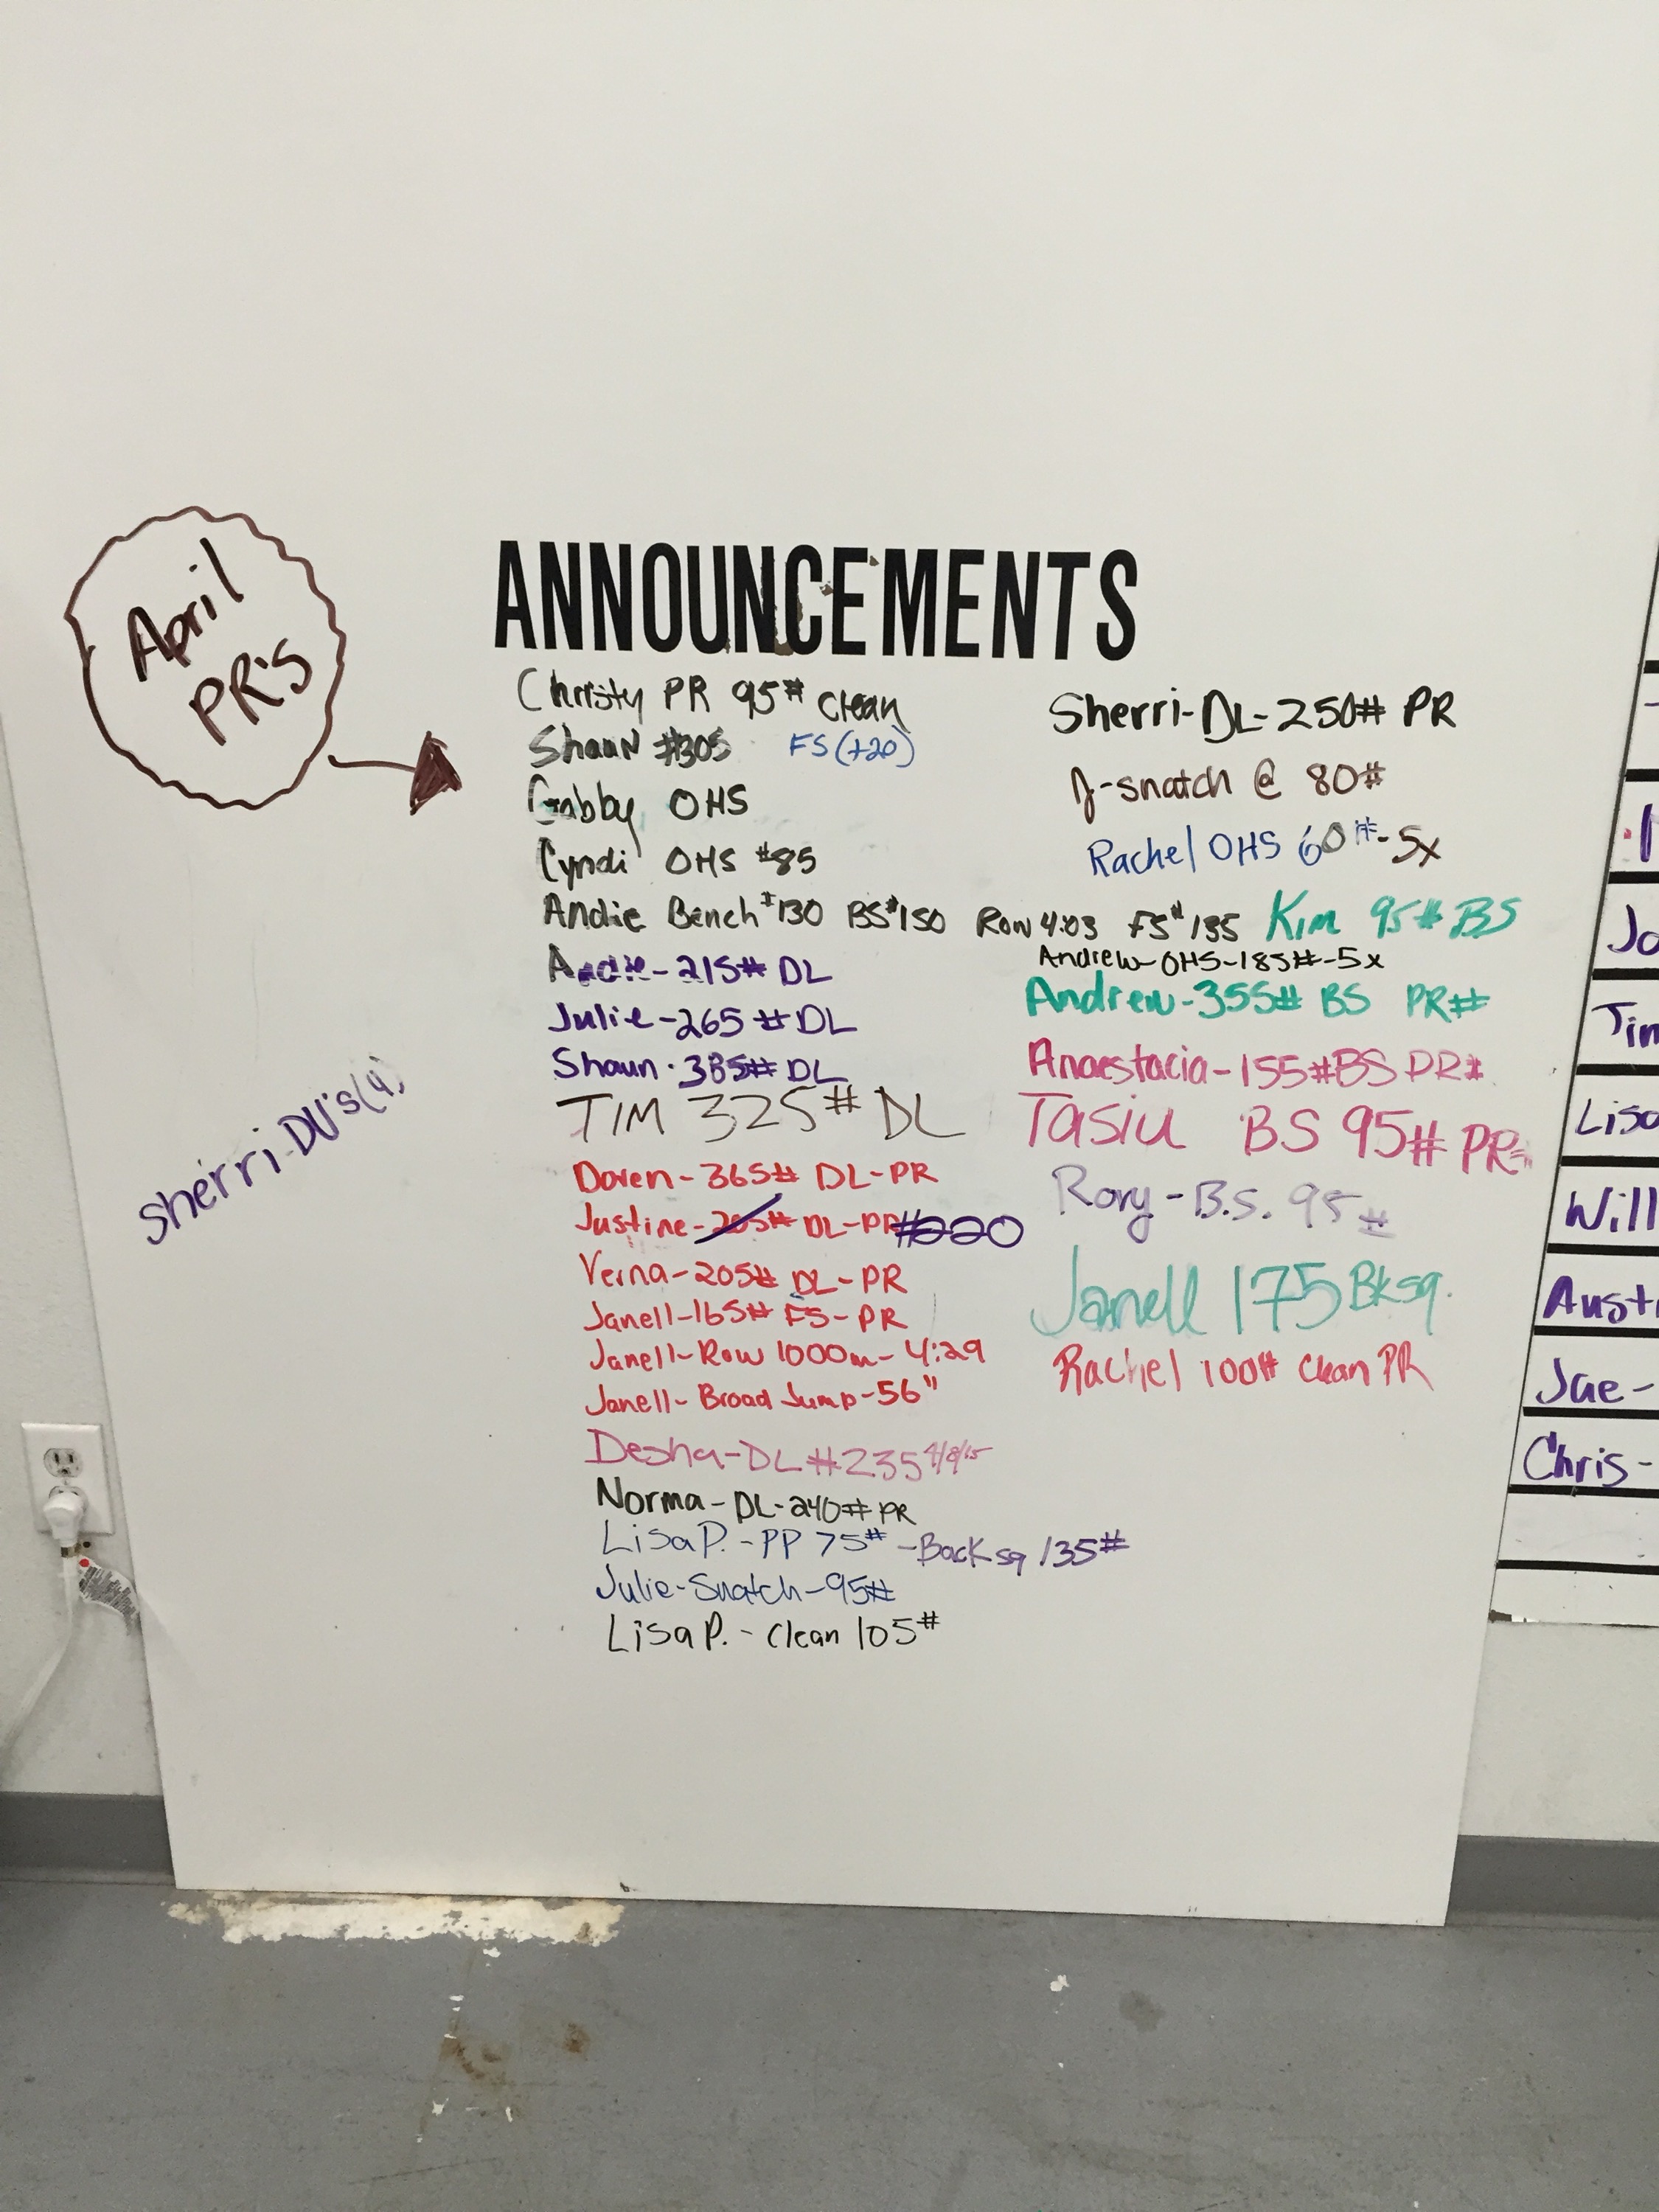 April
PR'S
ANNOUNCEMENTS
Christy PR 95# clean
Shaun #305 FS (+20)
Gabby OHS
Cyndi OHS #85
Andie Bench #130 BS #150 Row 4:03 FS #135
Andie - 215# DL
Julie - 265 # DL
Shaun - 385# DL
TIM 325# DL
Daren - 365# DL - PR
Justine - 205# DL - PR #220
Verna - 205# DL - PR
Janell - 165# FS - PR
Janell - Row 1000m - 4:29
Janell - Broad Jump - 56"
Desha - DL #235 4/8/15
Norma - DL - 240# PR
Lisa P. - PP 75# - Back sq 135#
Julie - Snatch - 95#
Lisa P. - Clean 105#
Sherri - DL - 250# PR
J - snatch @ 80#
Rachel OHS 60# - 5x
Kim 95# BS
Andrew - OHS - 185# - 5x
Andrew - 355# BS PR#
Anaestacia - 155# BS PR#
Tasiu BS 95# PR
Rory - B.S. 95#
Janell 175 Bksq.
Rachel 100# Clean PR
Sherri - DU's (4)
Jo
Tim
Lisa
Will
Aust
Jae -
Chris -